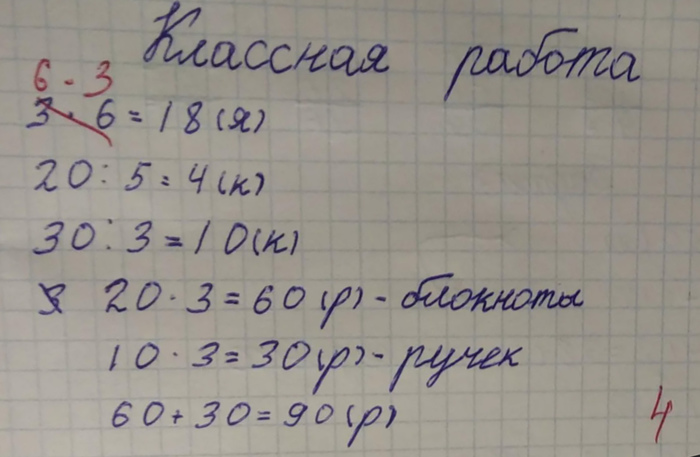 Классная работа
6 · 3
3 · 6 = 18 (я)
20 : 5 = 4 (к)
30 : 3 = 10 (к)
20 · 3 = 60 (р) - блокноты
10 · 3 = 30 (р) - ручек
60 + 30 = 90 (р)
4